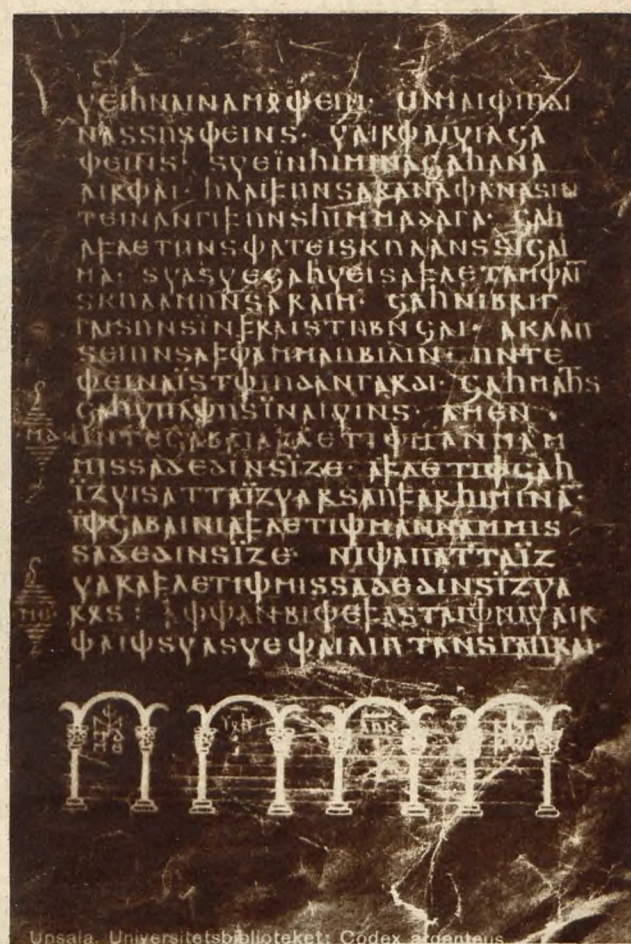 𐍅𐌴𐌹𐌷𐌽𐌰𐌹𐌽𐌰𐌼𐍉𐌸𐌴𐌹𐌽· 𐌵𐌹𐌼𐌰𐌹𐌸𐌹𐌿𐌳𐌹
𐌽𐌰𐍃𐍃𐌿𐍃𐌸𐌴𐌹𐌽𐍃· 𐍅𐌰𐌹𐍂𐌸𐌰𐌹𐍅𐌹𐌻𐌾𐌰
𐌸𐌴𐌹𐌽𐍃· 𐍃𐍅𐌴𐌹̈𐌽𐌷𐌹𐌼𐌹𐌽𐌰𐌾𐌰𐌷𐌰𐌽𐌰
𐌰𐌹𐍂𐌸𐌰𐌹· 𐌷𐌻𐌰𐌹𐍆𐌿𐌽𐍃𐌰𐍂𐌰𐌽𐌰𐌸𐌰𐌽𐌰𐍃𐌹𐌽
𐍄𐌴𐌹𐌽𐌰𐌽𐌲𐌹𐍆𐌿𐌽𐍃𐌷𐌹𐌼𐌼𐌰𐌳𐌰𐌲𐌰· 𐌾𐌰𐌷
𐌰𐍆𐌻𐌴𐍄𐌿𐌽𐍃𐌸𐌰𐍄𐌴𐌹𐍃𐌺𐌿𐌻𐌰𐌽𐍃𐍃𐌹𐌾𐌰𐌹
𐌼𐌰· 𐍃𐍅𐌰𐍃𐍅𐌴𐌾𐌰𐌷𐍅𐌴𐌹𐍃𐌰𐍆𐌻𐌴𐍄𐌰𐌼𐌸𐌰𐌹
𐍃𐌺𐌿𐌻𐌰𐌼𐌿𐌽𐍃𐌰𐍂𐌰𐌹𐌼· 𐌾𐌰𐌷𐌽𐌹𐌱𐍂𐌹𐌲
𐌲𐌰𐌹𐍃𐌿𐌽𐍃𐌹̈𐌽𐍆𐍂𐌰𐌹𐍃𐍄𐌿𐌱𐌽𐌾𐌰𐌹· 𐌰𐌺𐌻𐌰𐌿
𐍃𐌴𐌹𐌿𐌽𐍃𐌰𐍆𐌸𐌰𐌼𐌼𐌰𐌿𐌱𐌹𐌻𐌹𐌽· 𐌿𐌽𐍄𐌴
𐌸𐌴𐌹𐌽𐌰𐌹̈𐍃𐍄𐌸𐌹𐌿𐌳𐌰𐌽𐌲𐌰𐍂𐌳𐌹· 𐌾𐌰𐌷𐌼𐌰𐌷𐍄𐍃
𐌾𐌰𐌷𐍅𐌿𐌻𐌸𐌿𐍃𐌹̈𐌽𐌰𐌹𐍅𐌹𐌽𐍃· 𐌰𐌼𐌴𐌽·
𐌼𐌳
𐌿𐌽𐍄𐌴𐌾𐌰𐌱𐌰𐌹𐌰𐍆𐌻𐌴𐍄𐌹𐌸𐌼𐌰𐌽𐌽𐌰𐌼
𐌼𐌹𐍃𐍃𐌰𐌳𐌴𐌳𐌹𐌽𐍃𐌹̈𐌶𐌴· 𐌰𐍆𐌻𐌴𐍄𐌹𐌸𐌾𐌰𐌷
𐌹̈𐌶𐍅𐌹𐍃𐌰𐍄𐍄𐌰𐌹̈𐌶𐍅𐌰𐍂𐍃𐌰𐌿𐍆𐌰𐍂𐌷𐌹𐌼𐌹𐌽𐌰̅·
𐌹̈𐌸𐌾𐌰𐌱𐌰𐌹𐌽𐌹𐌰𐍆𐌻𐌴𐍄𐌹𐌸𐌼𐌰𐌽𐌽𐌰𐌼𐌼𐌹𐍃
𐍃𐌰𐌳𐌴𐌳𐌹𐌽𐍃𐌹̈𐌶𐌴· 𐌽𐌹𐌸𐌰𐌿𐌰𐍄𐍄𐌰𐌹̈𐌶
𐍅𐌰𐍂𐌰𐍆𐌻𐌴𐍄𐌹𐌸𐌼𐌹𐍃𐍃𐌰𐌳𐌴𐌳𐌹𐌽𐍃𐌹̈𐌶𐍅𐌰
𐌼𐌴
𐍂𐍉𐍃: 𐌰𐌸𐌸𐌰𐌽𐌱𐌹𐌸𐌴𐍆𐌰𐍃𐍄𐌰𐌹𐌸𐌽𐌹𐍅𐌰𐌹𐍂
𐌸𐌰𐌹𐌸𐍃𐍅𐌰𐍃𐍅𐌴𐌸𐌰𐌹𐌻𐌹𐌿𐍄𐌰𐌽𐍃𐌲𐌰𐌿𐍂𐌰𐌹·
Upsala. Universitetsbiblioteket: Codex argenteus